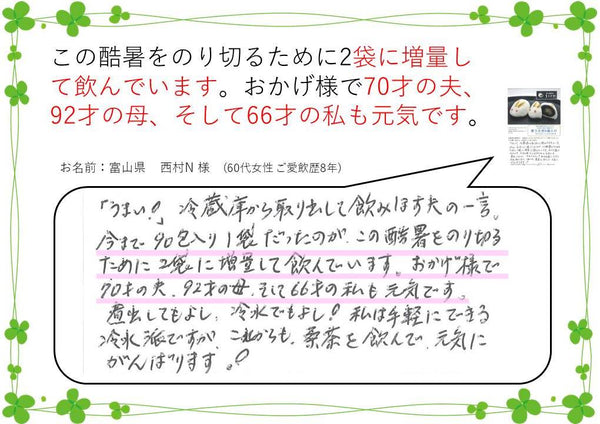 この酷暑をのり切るために2袋に増量し
て飲んでいます。おかげ様で70才の夫、
92才の母、そして66才の私も元気です。
お名前：富山県　西村N 様　（60代女性 ご愛飲歴8年）
「うまい！」 冷蔵庫から取り出して飲みほす夫の一言。
今まで90包入り1袋だったのが、この酷暑をのり切る
ために2袋に増量して飲んでいます。おかげ様で
70才の夫、92才の母、そして66才の私も元気です。
煮出してもよし、冷水でもよし！ 私は手軽にできる
冷水派ですが、これからも、桑茶を飲んで、元気に
がんばります。！